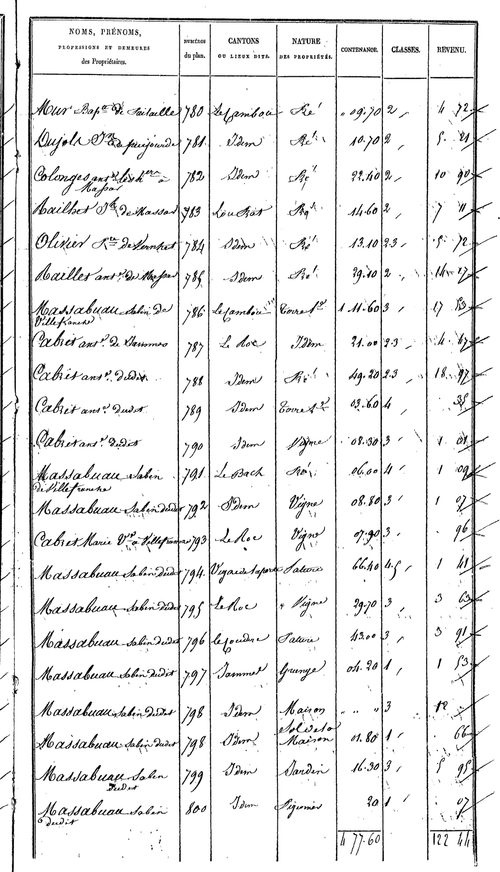 NOMS, PRÉNOMS, PROFESSIONS ET DEMEURES des Propriétaires. NUMÉROS du plan. CANTONS OU LIEUX DITS. NATURE DES PROPRIÉTÉS. CONTENANCE. CLASSES. REVENU.
Mur Bap.te de 780 Le Cambou Pré 09.70 2 4 72
Dujols 781 Idem Pré 10.70 2 5 21
Colonges ans 782 Idem Pré 22.40 2 10 90
783 Lou Prat Pré 14.60 2 7 11
Olivier 784 Idem Pré 13.10 2.3 5 72
785 Idem Pré 29.10 2 14 17
Massabuau Sabin de 786 Le Cambou Terre 1 11.60 3 17 53
Villefranche
Cabret ans de 787 Le Roc Idem 21.00 2.3 4 67
Cabret ans dudit 788 Idem Pré 49.20 2.3 18 97
Cabret ans dudit 789 Idem Terre 03.60 4 35
Cabret ans dudit 790 Idem Vigne 08.30 3 1 01
Massabuau Sabin 791 Le Bach Pré 06.00 4 1 09
de Villefranche
Massabuau Sabin dudit 792 Idem Vigne 08.80 3 1 07
Cabret Marie V.ve à Villefranche 793 Le Roc Vigne 07.90 3 96
Massabuau Sabin dudit 794 Pature 66.40 4.5 1 41
Massabuau Sabin dudit 795 Le Roc Vigne 29.70 3 3 63
Massabuau Sabin dudit 796 Le Coudre Pature 43.00 3 3 91
Massabuau Sabin dudit 797 Jammet Grange 04.20 1 1 53
Massabuau Sabin dudit 798 Idem Maison " " " 3 12
Massabuau Sabin dudit 798 Idem Sol de la Maison 01.80 1 66
Massabuau Sabin 799 Idem Jardin 16.30 3 5 95
dudit
Massabuau Sabin 800 Idem Pigeonier 20 1 07
dudit
4 77.60 122 44